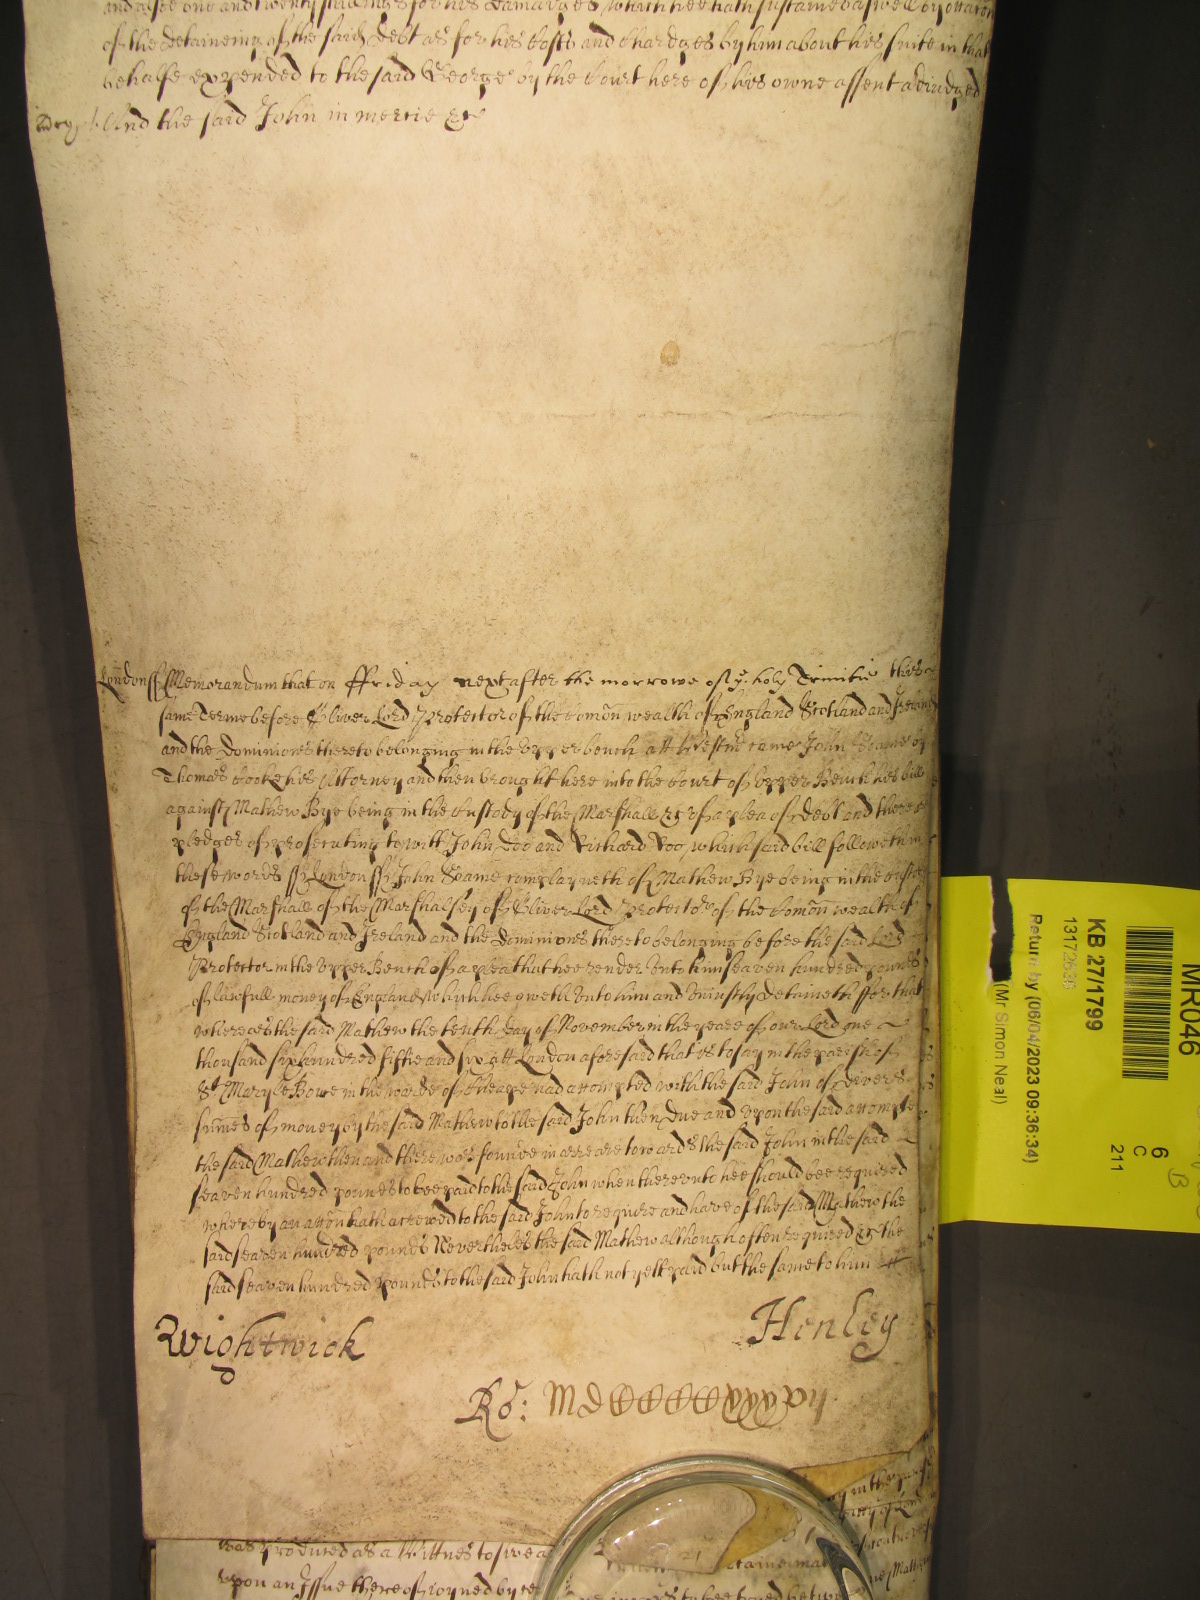 and alsoe one and twenty shillings for his damages which hee hath sustained aswell by occasion
of the detaineing of the said debt as for his Costs and Chardges by him about his suite in that
behalfe expended to the said George by the Court here of his owne assent adiudged
And the said John in mercie &c
London ss Memorandum that on ffriday next after the morrowe of ye holy Trinitie this
same Terme before Oliver Lord Protector of the Comon wealth of England Scotland and Ireland
and the Dominions thereto belonging in the Upper bench att Westmr came John Seame by
Thomas Cooke his Attorney and then brought here into the Court of Upper Bench his bill
against Mathew Bye being in the Custody of the Marshall &c of a plea of debt and there are
pledges of prosecuting to witt John Doo and Richard Roo, which said bill followeth in
these words ss London ss John Seame complayneth of Mathew Bye being in the Custody
of the Marshall of the Marshalsey of Oliver Lord Protector of the Comon wealth of
England Scotland and Ireland and the Dominions thereto belonging before the said Lord
Protector in the Upper Bench of a plea that hee render unto him seaven hundred pounds
of lawfull money of England which hee oweth unto him and uniustly detaineth ffor that
whereas the said Mathew the tenth day of November in the yeare of our Lord one
thousand six hundred fiftie and six att London aforesaid that is to say in the parish of
St Mary le Bowe in the warde of Cheape had accompted with the said John of divers
sumes of money by the said Mathew to the said John then due and upon the said accompte
the said Mathew then and there was founde in arreare towards the said John in the said
seaven hundred pounds to bee paid to the said John when thereunto hee should bee required
whereby an accon hath accrewed to the said John to require and have of the said Mathew the
said seaven hundred pounds Neverthelesse the said Mathew although often required &c the
said seaven hundred pounds to the said John hath not yett paid but the same to him
Wightwick
Henley
Ro:
was produced as a Wittnes to sweare
upon an Issue thereof ioyned by
MR046
KB 27/1799
13172636
Return by (06/04/2023 09:36:34)
(Mr Simon Neal)
6
C
211